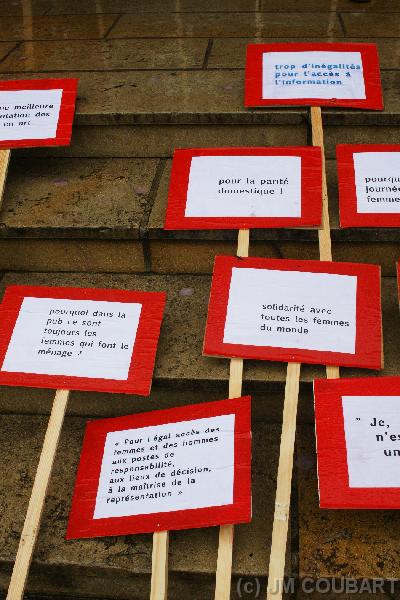 trop d'inégalités
pour l'accès à
l'information
ne meilleure
des
en art
pour la parité
domestique !
pourqu
journé
femme
pourquoi dans la
pub ce sont
toujours les
femmes qui font le
ménage ?
solidarité avec
toutes les femmes
du monde
« Pour l'égal accès des
femmes et des hommes
aux postes de
responsabilité,
aux lieux de décision,
à la maîtrise de la
représentation »
" Je,
n'es
un
(c) JM COUBART